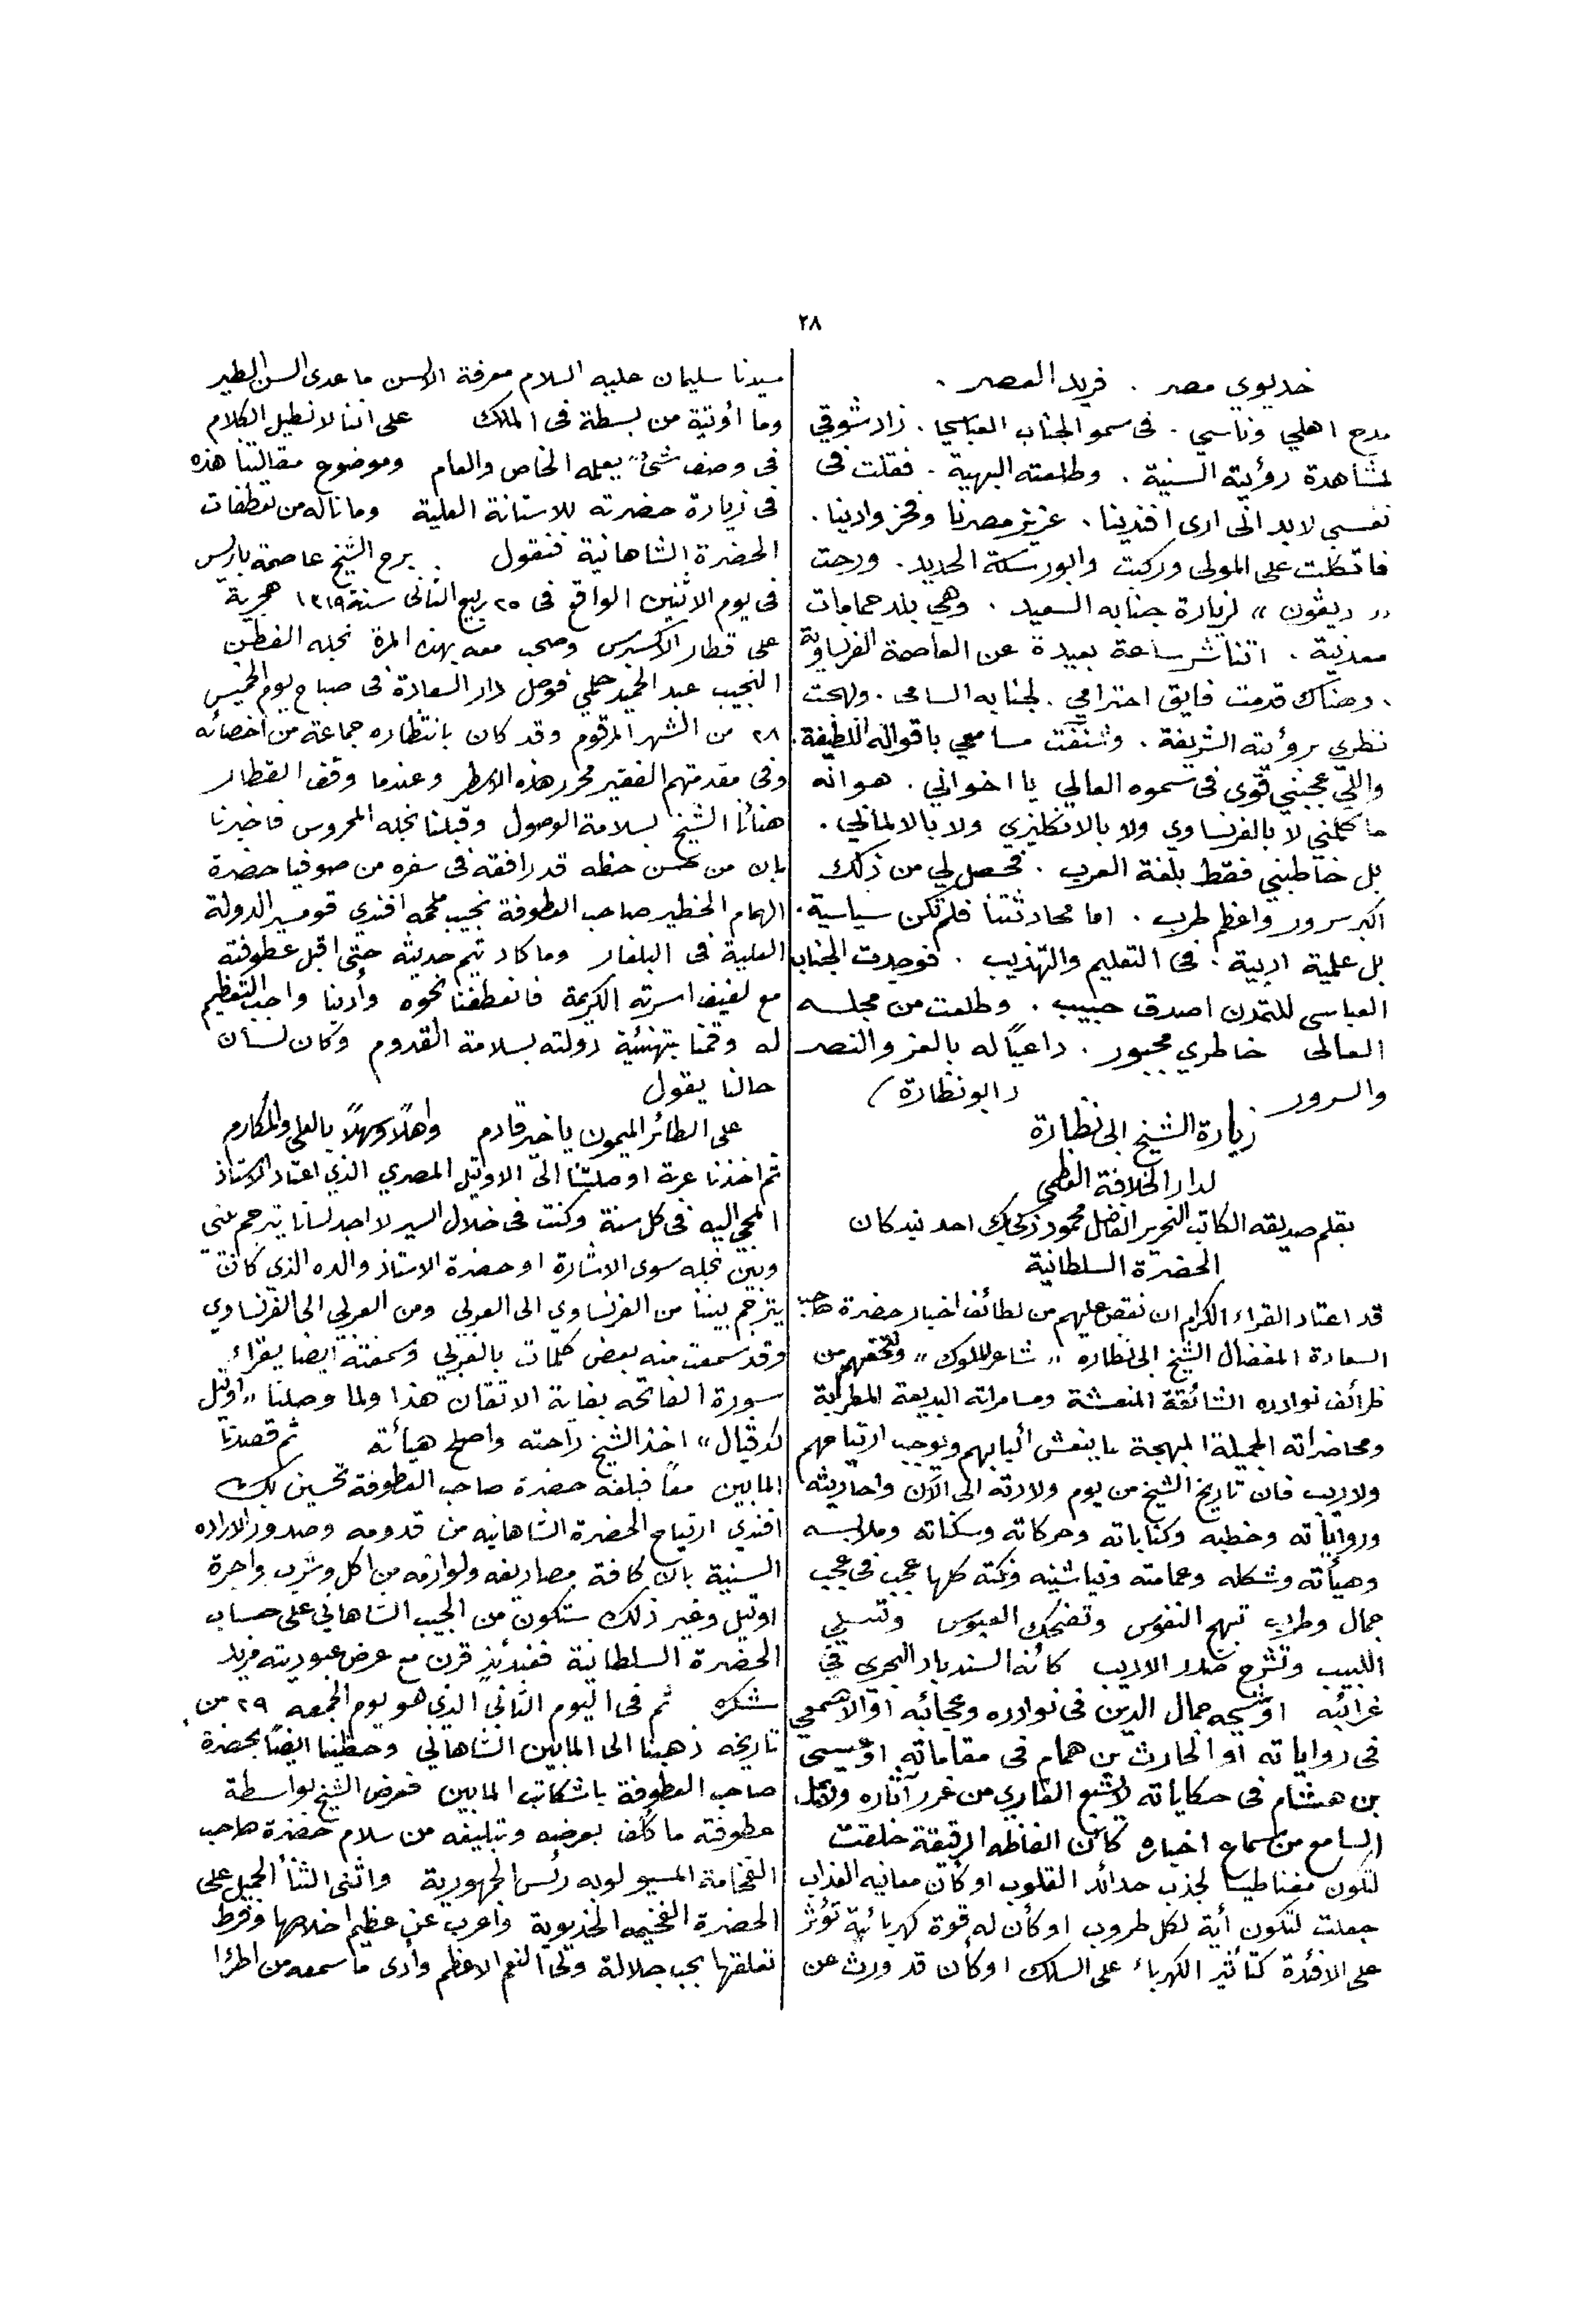 ٢٨
خديوي مصر . فريد العصر .
مدح اهلي وناسي . فى سمو الجناب العباسي . زاد شوقي
لمشاهدة رؤيته السنية . وطلعته البهية . فقلت فى
نفسى لابد انى ارى افندينا . عزيز مصرنا وفخر وادينا .
فاتكلت على المولى وركبت وابور سكة الحديد . ورحت
« ديڤون » لزيارة جنابه السعيد . وهي بلد حمامات
معدنية . اتناشر ساعة بعيدة عن العاصمة الفرنساوية
. وهناك قدمت فايق احترامي . لجنابه السامى . ولهجت
نظري برؤيته الشريفة . وشنفت مسامعي باقواله اللطيفة .
واللي عجبني قوى فى سموه العالي يا اخواني . هو انه
ما كلمني لا بالفرنساوي ولا بالانكليزي ولا بالالماني .
بل خاطبني فقط بلغة العرب . فحصل لي من ذلك
اكبر سرور واعظم طرب . اما محادثتنا فلم تكن سياسية .
بل علمية ادبية . فى التعليم والتهذيب . فوجدت الجناب
العباسى للتمدن اصدق حبيب . وطلعت من مجلسه
العالى خاطري مجبور . داعيًا له بالعز والنصر
والسرور . (ابو نظارة)
زيارة الشيخ ابى نظارة
لدار الخلافة العظمى
بقلم صديقه الكاتب النحرير الفاضل محمود زكي بك احد تيدكان
الحضرة السلطانية
قد اعتاد القراء الكرام ان نقص عليهم من لطائف اخبار حضرة صاحب
السعادة المفضال الشيخ ابى نظاره « شاعر الملوك » ونتحفهم من
ظرائف نوادره الشائقة المنعشة ومسامراته البديعة المطربة
ومحاضراته الجميلة المبهجة ما ينعش ألبابهم ويوجب ارتياحهم
ولا ريب فان تاريخ الشيخ من يوم ولادته الى الآن واحاديثه
ورواياته وخطبه وكتاباته وحركاته وسكناته وملابسه
وهيأته وشكله وعمامته ونياشينه ونكته كلها عجب فى عجب
جمال وطرب تبهج النفوس وتضحك العبوس وتسلي
اللبيب وتشرح صدر الاديب كأنه السندباد البحري في
غرائبه او شيحه جمال الدين فى نوادره وعجائبه او الاصمعي
فى رواياته أو الحارث بن همام فى مقاماته او عيسى
بن هشام فى حكاياته لا يشبع القاري من غرر آثاره ولا يمل
السامع من سماع اخباره كأن الفاظه الرقيقة خلقت
لتكون مغناطيسا لجذب حدائد القلوب او كأن معانيه العذاب
جعلت لتكون أية لكل طروب او كأن له قوة كهربائية تؤثر
على الافئدة كتأثير الكهرباء على السلك او كأن قد ورث عن
سيدنا سليمان عليه السلام معرفة الالسن ما عدى السن الطير
وما أوتيه من بسطة فى الملك على اننا لا نطيل الكلام
فى وصف شئ يعلمه الخاص والعام وموضوع مقالتنا هذه
فى زيارة حضرته للاستانة العلية وما ناله من تعطفات
الحضرة الشاهانية فنقول . برح الشيخ عاصمة باريس
فى يوم الاثنين الواقع فى ٢٥ ربيع الثانى سنة ١٣١٩ هجرية
على قطار الاكسبرس وصحب معه بهذه المرة نجله الفطن
النجيب عبد الحميد حلمي فوصل دار السعادة فى صباح يوم الخميس
٢٨ من الشهر المرقوم وقد كان بانتظاره جماعة من اخصائه
وفى مقدمتهم الفقير محرر هذه الاسطر وعندما وقف القطار
هنأنا الشيخ بسلامة الوصول وقبلنا نجله المحروس فاخبرنا
بان من حسن حظه قد رافقه فى سفره من صوفيا حضرة
الهمام الخطير صاحب العطوفة نجيب ملحمه افندي قومسير الدولة
العلية فى البلغار وما كاد يتم حديثه حتى اقبل عطوفته
مع لفيف اسرته الكريمة فانعطفنا نحوه وأدينا واجب التعظيم
له وقمنا بتهنئية دولته بسلامة القدوم وكان لسان
حالنا يقول
على الطائر الميمون يا خير قادم واهلًا وسهلًا بالعلى والمكارم
ثم اخذنا عربة اوصلتنا الى الاوتيل المصري الذي اعتاد الاستاذ
المجي اليه فى كل سنة وكنت فى خلال السير لا اجد لسانا يترجم بيني
وبين نجله سوى الاشارة او حضرة الاستاذ والده الذي كان
يترجم بيننا من الفرنساوي الى العربي ومن العربي الى الفرنساوي
وقد سمعت منه بعض كلمات بالعربي وسمعته ايضا يقراء
سورة الفاتحه بغاية الاتقان هذا ولما وصلنا « اوتيل
لوڤيال » اخذ الشيخ راحته واصلح هيأته ثم قصدنا
المابين معًا فبلغه حضرة صاحب العطوفة تحسين بك
افندي ارتياح الحضرة الشاهانيه من قدومه وصدور الاراده
السنية بان كافة مصاريفه ولوازمه من اكل وشرب واجرة
اوتيل وغير ذلك ستكون من الجيب الشاهاني على حساب
الحضرة السلطانية فعندئذٍ قرن مع عرض عبوديته مزيد
شكره ثم فى اليوم الثاني الذي هو يوم الجمعه ٢٩ من
تاريخه ذهبنا الى المابين الشاهاني وحظينا ايضًا بحضرة
صاحب العطوفة باشكاتب المابين فعرض الشيخ بواسطة
عطوفته ما كُلف بعرضه وتبليغه من سلام حضرة صاحب
الفخامة المسيو لوبه رئس الجمهورية واثنى الثنأ الجميل على
الحضرة الفخيمه الخديوية واعرب عن عظيم اخلاصها وفرط
تعلقها بحب جلالة ولى النعم الاعظم وأدى ما سمعه من اطرا